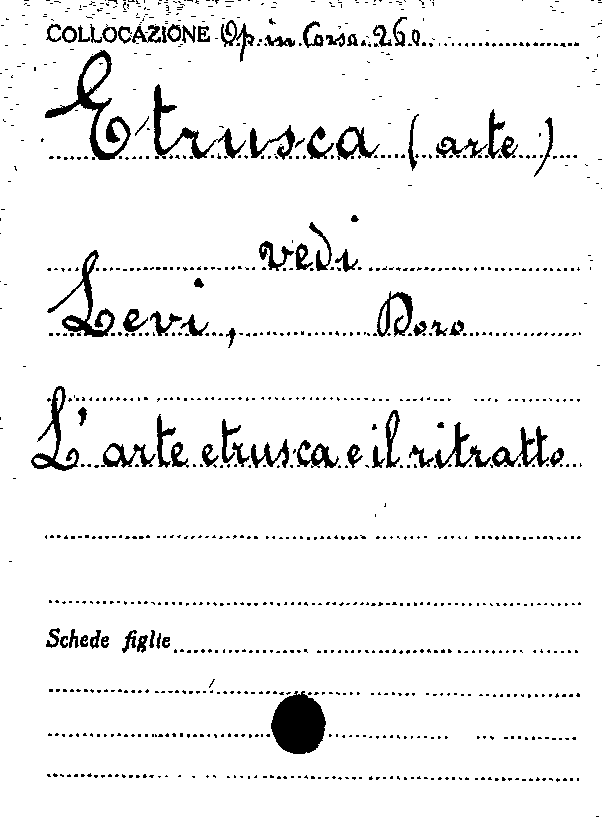 COLLOCAZIONE Op. in Corso. 260
Etrusca (arte)
vedi
Levi, Doro
L'arte etrusca e il ritratto
Schede figlie